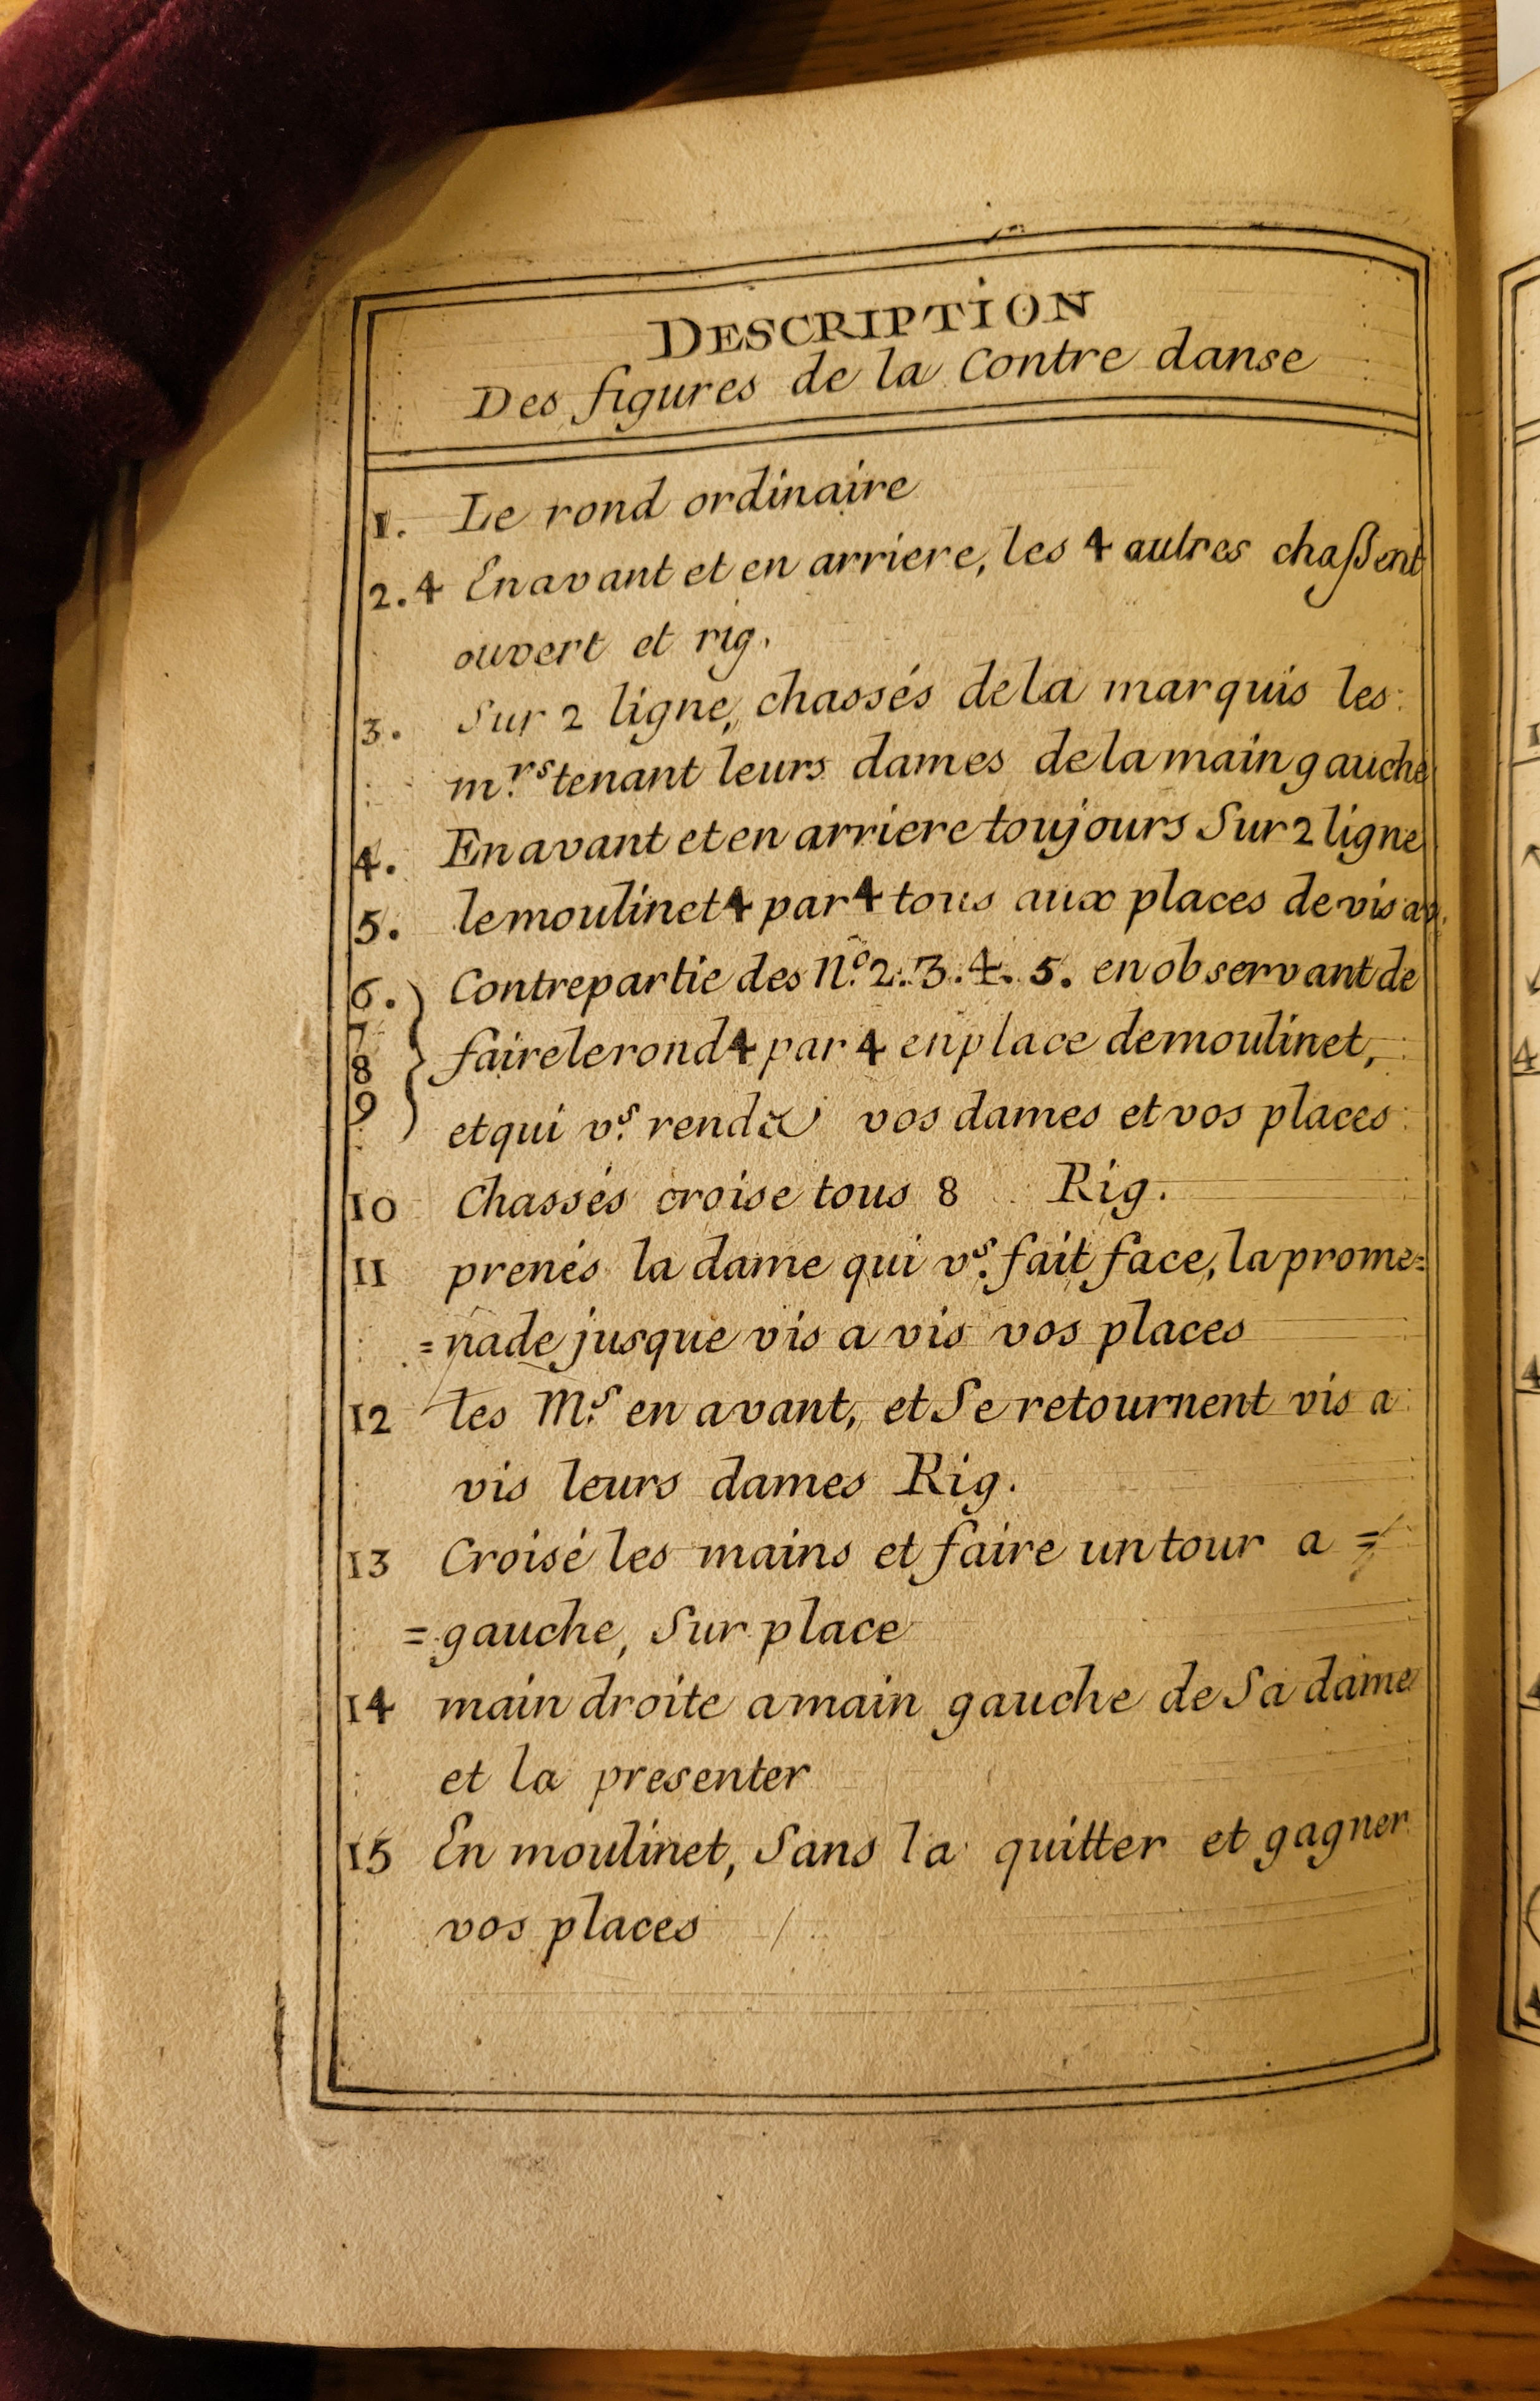 DESCRIPTION
Des figures de la Contre danse
1. Le rond ordinaire
2. 4 En avant et en arriere, les 4 autres chaßent
ouvert et rig.
3. Sur 2 ligne, chassés de la marquis les
m.rs tenant leurs dames de la main gauche
4. En avant et en arriere toujours Sur 2 ligne
5. le moulinet 4 par 4 tous aux places de vis a v.
6. Contrepartie des N.o 2. 3. 4. 5. en observant de
7
8 faire le rond 4 par 4 en place de moulinet,
9
et qui v.s vos dames et vos places
10 Chassés croise tous 8 Rig.
11 prenés la dame qui v.s fait face, la prome=
=nade jusque vis a vis vos places
12 les M.s en avant, et Se retournent vis a
vis leurs dames Rig.
13 Croisé les mains et faire un tour a =
=gauche, Sur place
14 main droite a main gauche de Sa dame
et la presenter
15 En moulinet, Sans la quitter et gagner
vos places
1
4
4